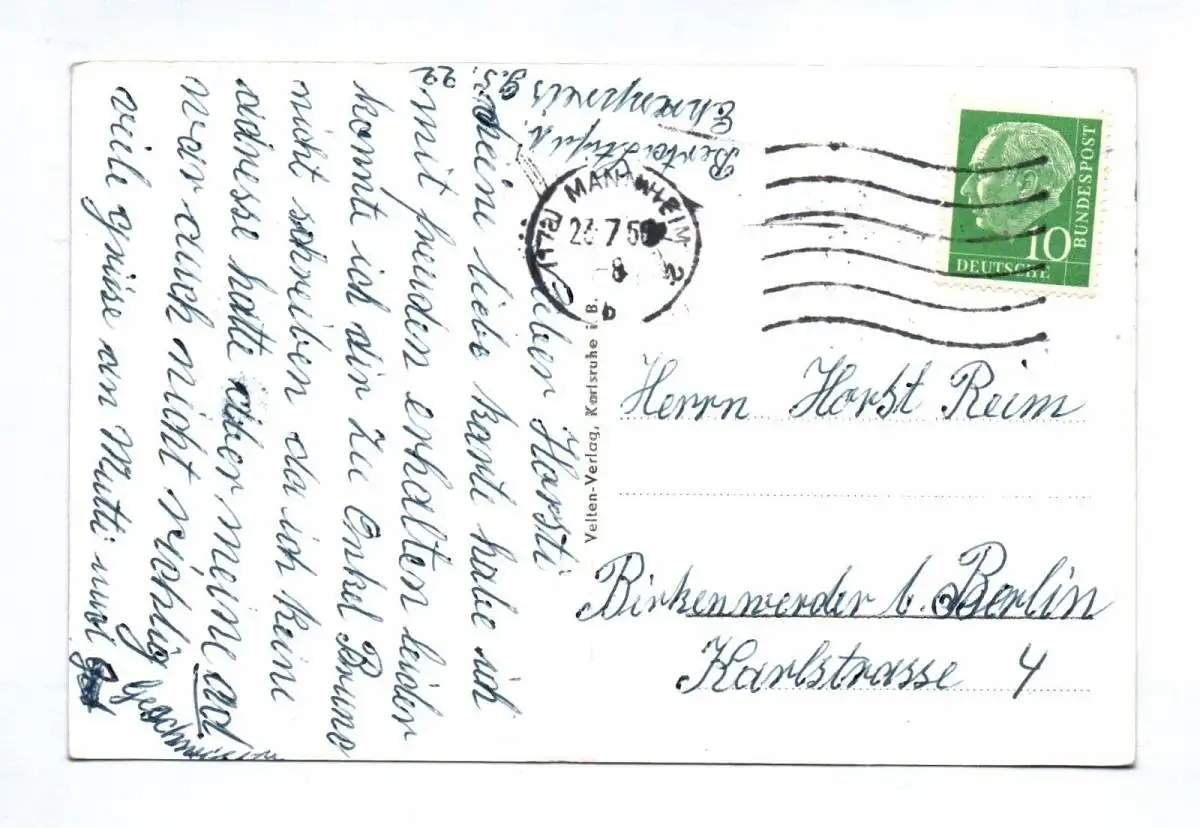 Lieber Horsti
deine liebe karte habe ich
mit freuden erhalten leider
konnte ich dir zu Onkel Bruno
nicht schreiben da ich keine
adresse hatte aber meine ad
war auch nicht richtig
viele grüsse an Mutti und
Geschwister
22
g.5.
MANNHEIM 2
(17a)
23.7.56
-8
b
BUNDESPOST
10
DEUTSCHE
Velten-Verlag, Karlsruhe i. B.
Herrn Horst Reim
Birkenwerder b. Berlin
Karlstrasse 4